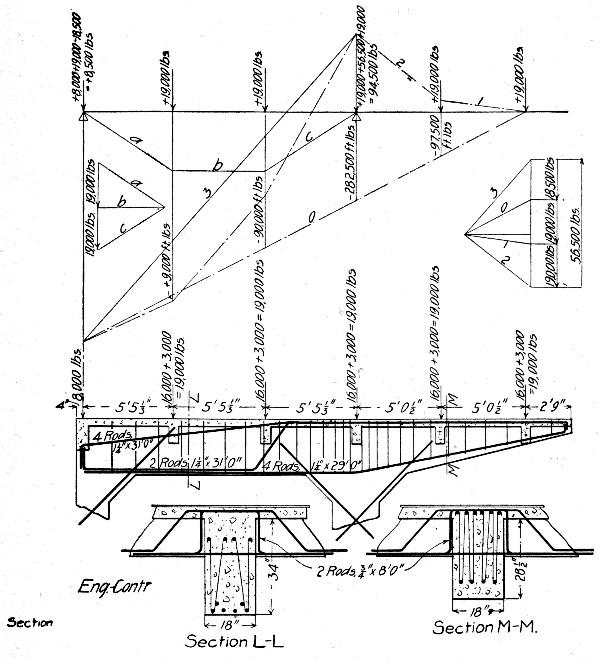 +8,000+19,000-18,500
= +8,500 lbs.
+19,000 lbs.
+19,000 lbs.
+19,000+56,500+19,000
= 94,500 lbs.
+19,000 lbs.
+19,000 lbs.
a
b
c
2
4
1
3
0
-97,500
ft lbs
-282,500 ft. lbs.
-90,000 ft lbs.
+9,000 ft lbs.
19,000 lbs.
19,000 lbs.
a
b
c
3
0
1
2
18,500 lbs.
19,000 lbs.
19,000 lbs.
56,500 lbs.
8,000 lbs.
16,000 + 3,000
= 19,000 lbs.
16,000 + 3,000 = 19,000 lbs.
16,000 + 3,000 = 19,000 lbs.
16,000 + 3,000 = 19,000 lbs.
16,000 + 3,000
= 19,000 lbs.
L
M
4"
5'5⅓"
5'5⅓"
5'5⅓"
5'0½"
5'0½"
2'9"
4 Rods
1¼"x31'0"
2 Rods 1¼"x31'0"
4 Rods 1¼"x29'0"
L
M
2 Rods ¾"x8'0"
34"
28½"
18"
18"
Eng-Contr
Section
Section L-L
Section M-M.